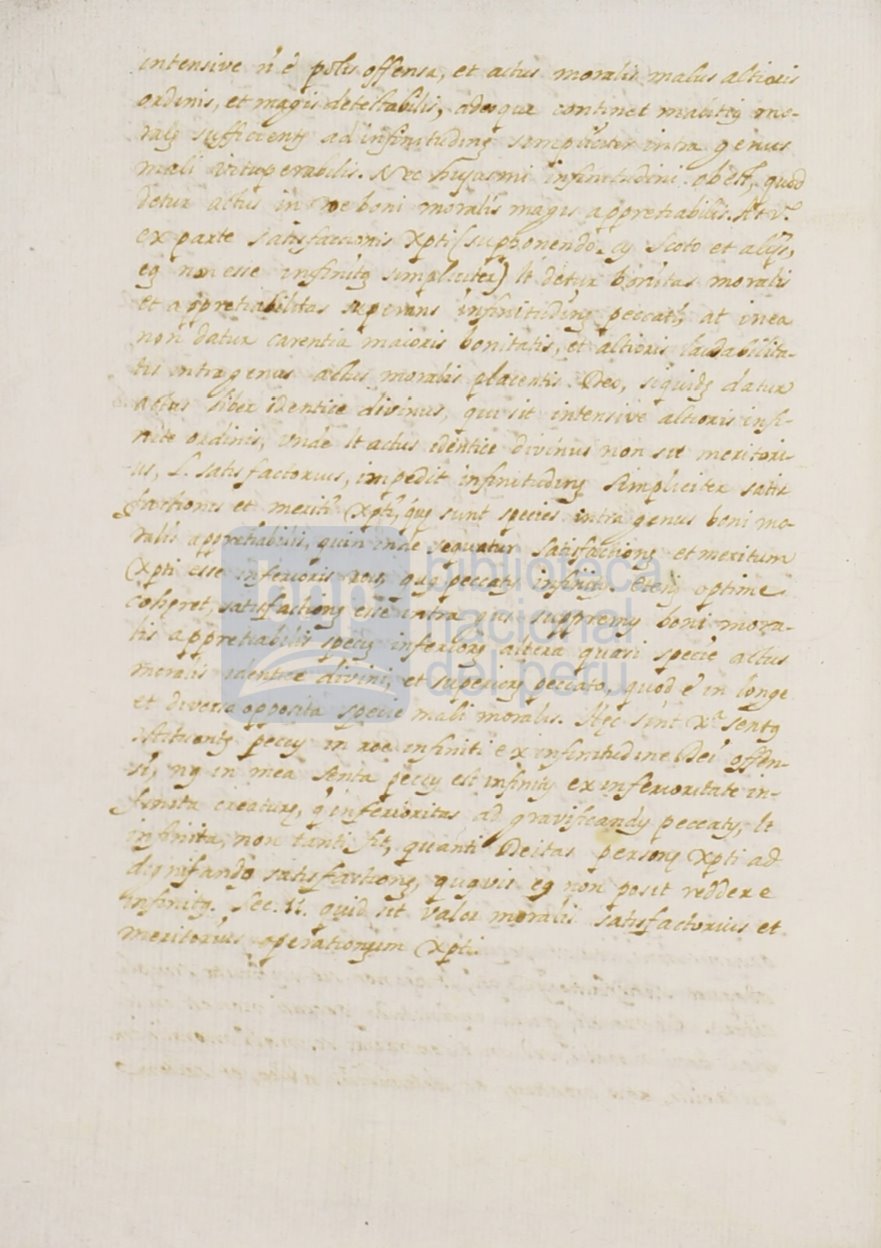 intensive n̄ ē po͞lis offensa, et actus moralis malus altioris
ordinis, et magis detestabilis, adeoque continet malitię mo-
ralę sufficientę ad infinitudinę simpliciter intra genus
mali vituperabilis. Nec hujusmi infinitudini obest, quod
detur actus in roe boni moralis magis appretiabilis. At v.º
ex parte satisfactionis Xpti (supponendo cų Scoto et alijs,
eą non esse infinitą simpliciter) lt detur bonitas moralis
et appretiabilitas superans infinitudinę peccati, at in ea
non datur carentia maioris bonitatis, et altioris laudabilita-
tis intra genus actus moralis placentis Deo, siquidę datur
actus liber identice divinus, qui sit intensive altioris infi-
nite ordinis, unde lt actus identice divinus non sit meritori-
us, l. satisfactorius, impedit infinitudinę simpliciter satis
factionis et meriti Xpti, quę sunt species intra genus boni mo-
ralis appretiabilis, quin inde sequatur satisfactionę et meritum
Xpti esse inferioris rois, quą peccatų infinitų. Etenį optime
cohęret, satisfactionę esse intra gus suppremų boni mora-
lis appretiabilis specię inferiorę altera quasi specie actus
moralis identice divini, et superiorę peccato, quod ē in longe
et diversa opposita specie mali moralis. Hęc sint xª sentą
istituentę peccų in roe infiniti ex infinitudine Dei offen-
si, ną in mea senta peccų est infinitų ex inferioritate in-
finita creaturę, q̄ inferioritas ad gravificandų peccatų, lt
infinita, non tanti fit, quanti Deitas personę Xpti ad
dignifandą satisfactionę, quąvis eą non posit reddere
infinitą. Sec. 11. quid sit valor moralis satisfactorius et
meritorius operationum Xpti.